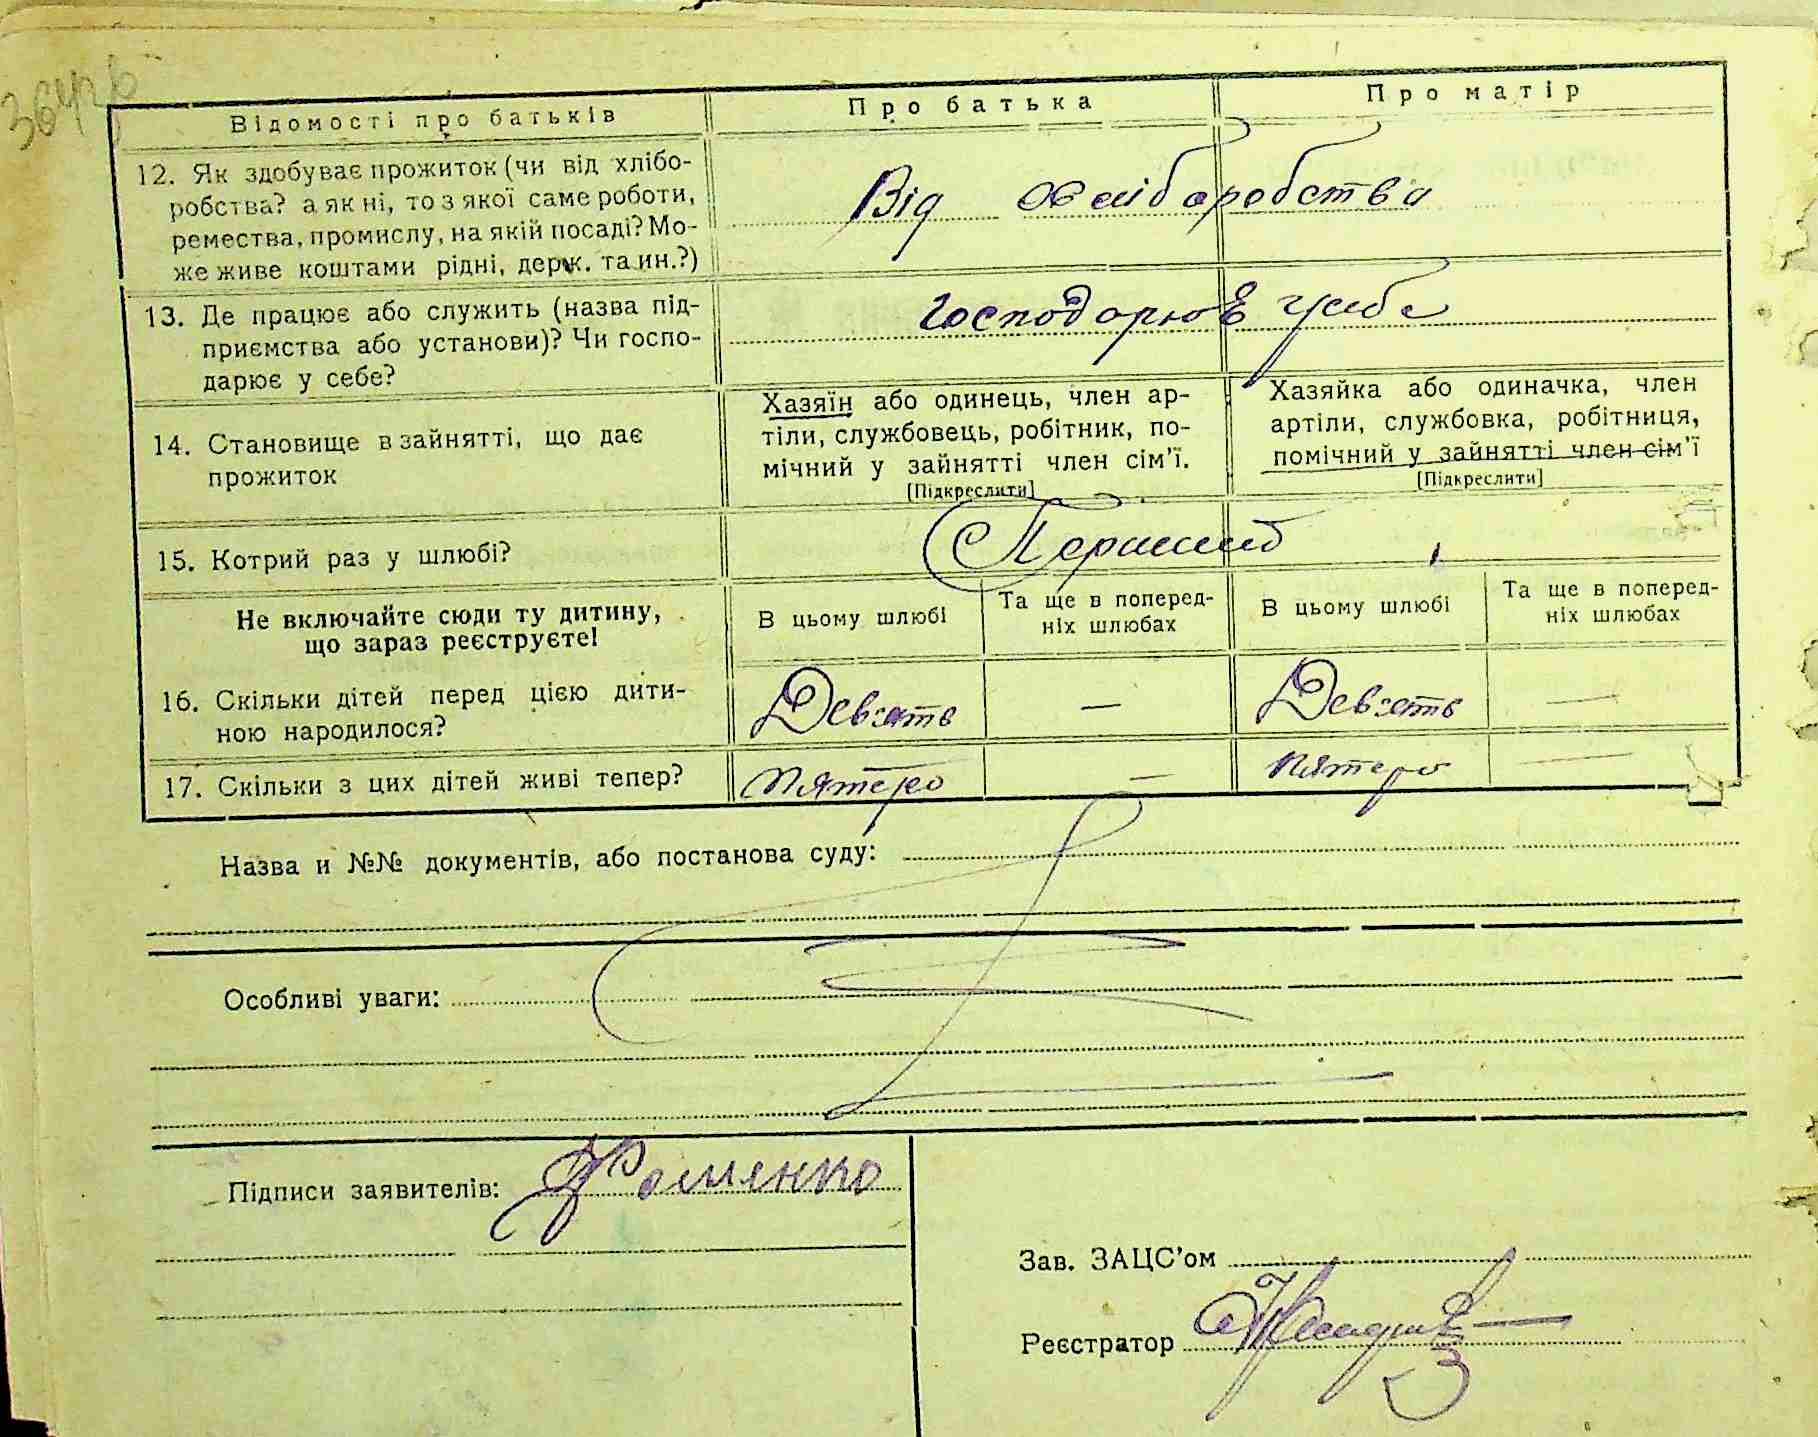 364зв
Відомості про батьків
Про батька
Про матір
12. Як здобуває прожиток (чи від хлібо-
робства? а як ні, то з якої саме роботи,
ремества, промислу, на якій посаді? Мо-
же живе коштами рідні, держ. та ин.?)
Від хліборобства
13. Де працює або служить (назва під-
приємства або установи)? Чи госпо-
дарює у себе?
Господорює у себе
14. Становище в зайнятті, що дає
прожиток
Хазяїн або одинець, член ар-
тіли, службовець, робітник, по-
мічний у зайнятті член сім'ї.
[Підкреслити]
Хазяйка або одиначка, член
артіли, службовка, робітниця,
помічний у зайнятті член сім'ї
[Підкреслити]
15. Котрий раз у шлюбі?
Перший
Не включайте сюди ту дитину,
що зараз реєструєте!
В цьому шлюбі
Та ще в поперед-
ніх шлюбах
В цьому шлюбі
Та ще в поперед-
ніх шлюбах
16. Скільки дітей перед цією дити-
ною народилося?
Девять — Девять —
17. Скільки з цих дітей живі тепер?
пятеро — пятеро —
Назва и №№ документів, або постанова суду:
Особливі уваги:
Підписи заявителів: Фоменко
Зав. ЗАЦС'ом
Реєстратор